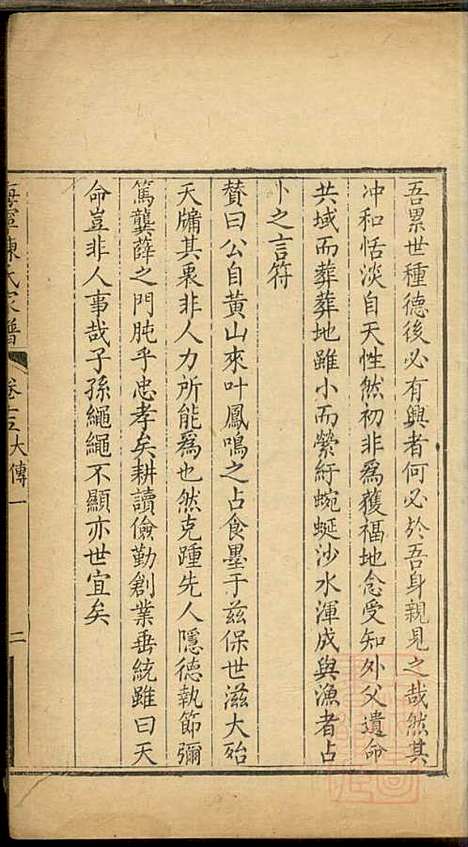 吾累世種德後必有興者何必於吾身親見之哉然其
冲和恬淡自天性然初非為獲福地念受知外父遺命
共域而葬葬地雖小而縈紆蜿蜒沙水渾成與漁者占
卜之言符
贊曰公自黃山來叶鳳鳴之占食墨于兹保世滋大殆
天牖其裏非人力所能為也然克踵先人隱德執節彌
篤龔薛之門肫乎忠孝矣耕讀儉勤創業垂統雖曰天
命豈非人事哉子孫繩繩不顯亦世宜矣
海寧陳氏家譜
卷十三大傳一
二